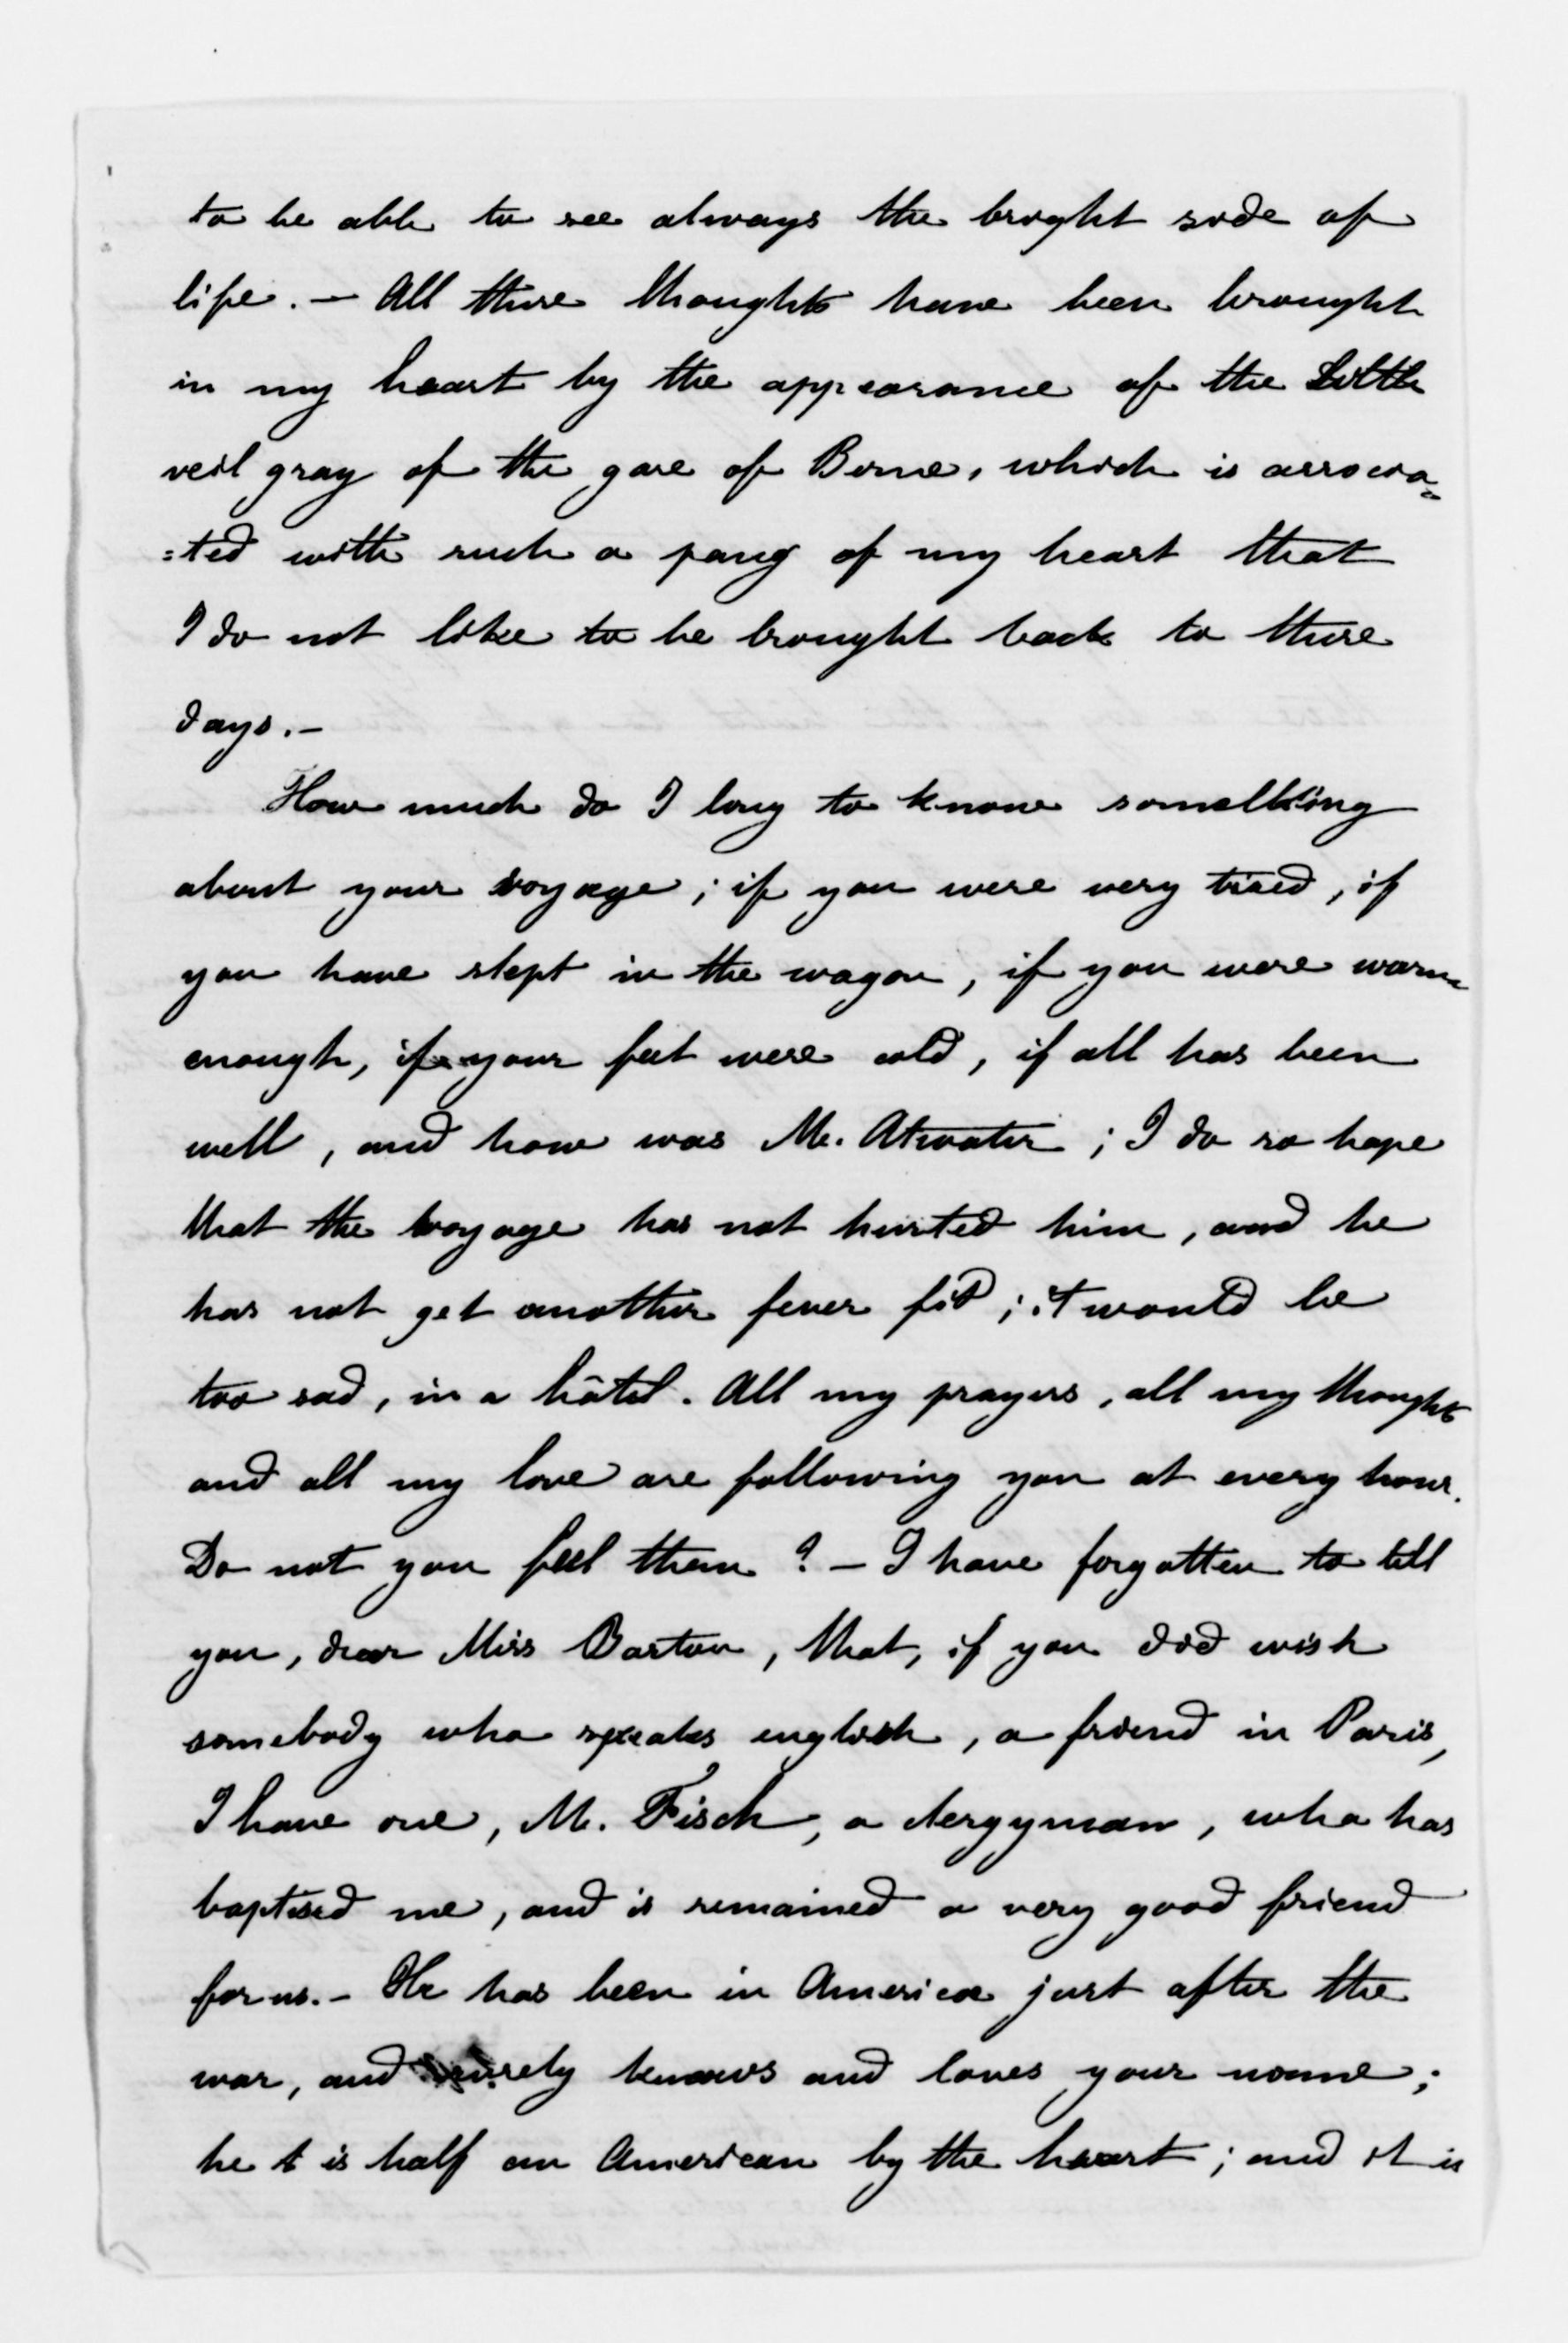 to be able to see always the bright side of
life. — All these thoughts have been brought
in my heart by the appearance of the little
veil gray of the gare of Berne, which is associa=
=ted with such a pang of my heart that
I do not like to be brought back to these
days. —
How much do I long to know something
about your voyage ; if you were very tired, if
you have slept in the wagon, if you were warm
enough, if your feet were cold, if all has been
well, and how was Mr. Atwater ; I do so hope
that the voyage has not hurted him, and he
has not get another fever fit ; it would be
too sad, in a hôtel. All my prayers, all my thoughts
and all my love are following you at every hour.
Do not you feel them ? — I have forgotten to tell
you, dear Miss Barton, that, if you did wish
somebody who speaks english, a friend in Paris,
I have one, M. Fisch, a clergyman, who has
baptised me, and is remained a very good friend
for us. — He has been in America just after the
war, and surely knows and loves your name ;
he is half an American by the heart ; and it is